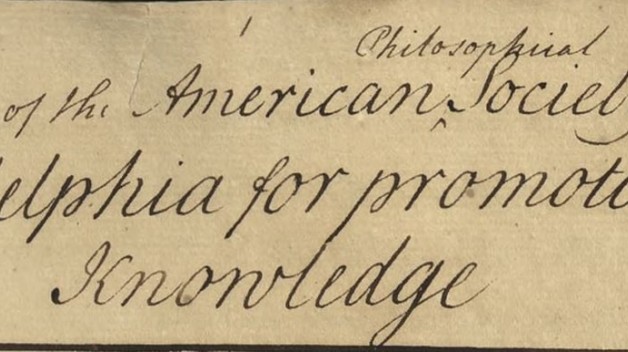 Philosophical
of the American, Societ
elphia for promot
Knowledge